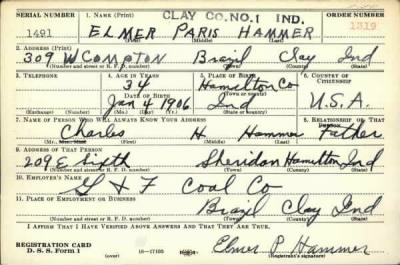 CLAY CO. NO. 1 IND.
SERIAL NUMBER 1. NAME (Print) ORDER NUMBER
1491 ELMER PARIS HAMMER 1319
(First) (Middle) (Last)
2. ADDRESS (Print)
309 W COMPTON Brazil Clay Ind
(Number and street or R. F. D. number) (Town) (County) (State)
3. TELEPHONE 4. AGE IN YEARS 5. PLACE OF BIRTH 6. COUNTRY OF CITIZENSHIP
34 Hamilton Co
DATE OF BIRTH (Town or county)
Jan 4 1906 Ind U.S.A.
(Exchange) (Number) (Mo.) (Day) (Yr.) (State or country)
7. NAME OF PERSON WHO WILL ALWAYS KNOW YOUR ADDRESS 8. RELATIONSHIP OF THAT PERSON
Charles H Hammer Father
(Mr., Mrs., Miss) (First) (Middle) (Last)
9. ADDRESS OF THAT PERSON
209 E Sixth Sheridan Hamilton Ind
(Number and street or R. F. D. number) (Town) (County) (State)
10. EMPLOYER'S NAME
G & F Coal Co
11. PLACE OF EMPLOYMENT OR BUSINESS
Brazil Clay Ind
(Number and street or R. F. D. number) (Town) (County) (State)
I AFFIRM THAT I HAVE VERIFIED ABOVE ANSWERS AND THAT THEY ARE TRUE.
REGISTRATION CARD
D. S. S. Form 1 (over) 16—17105 Elmer P Hammer
(Registrant's signature)